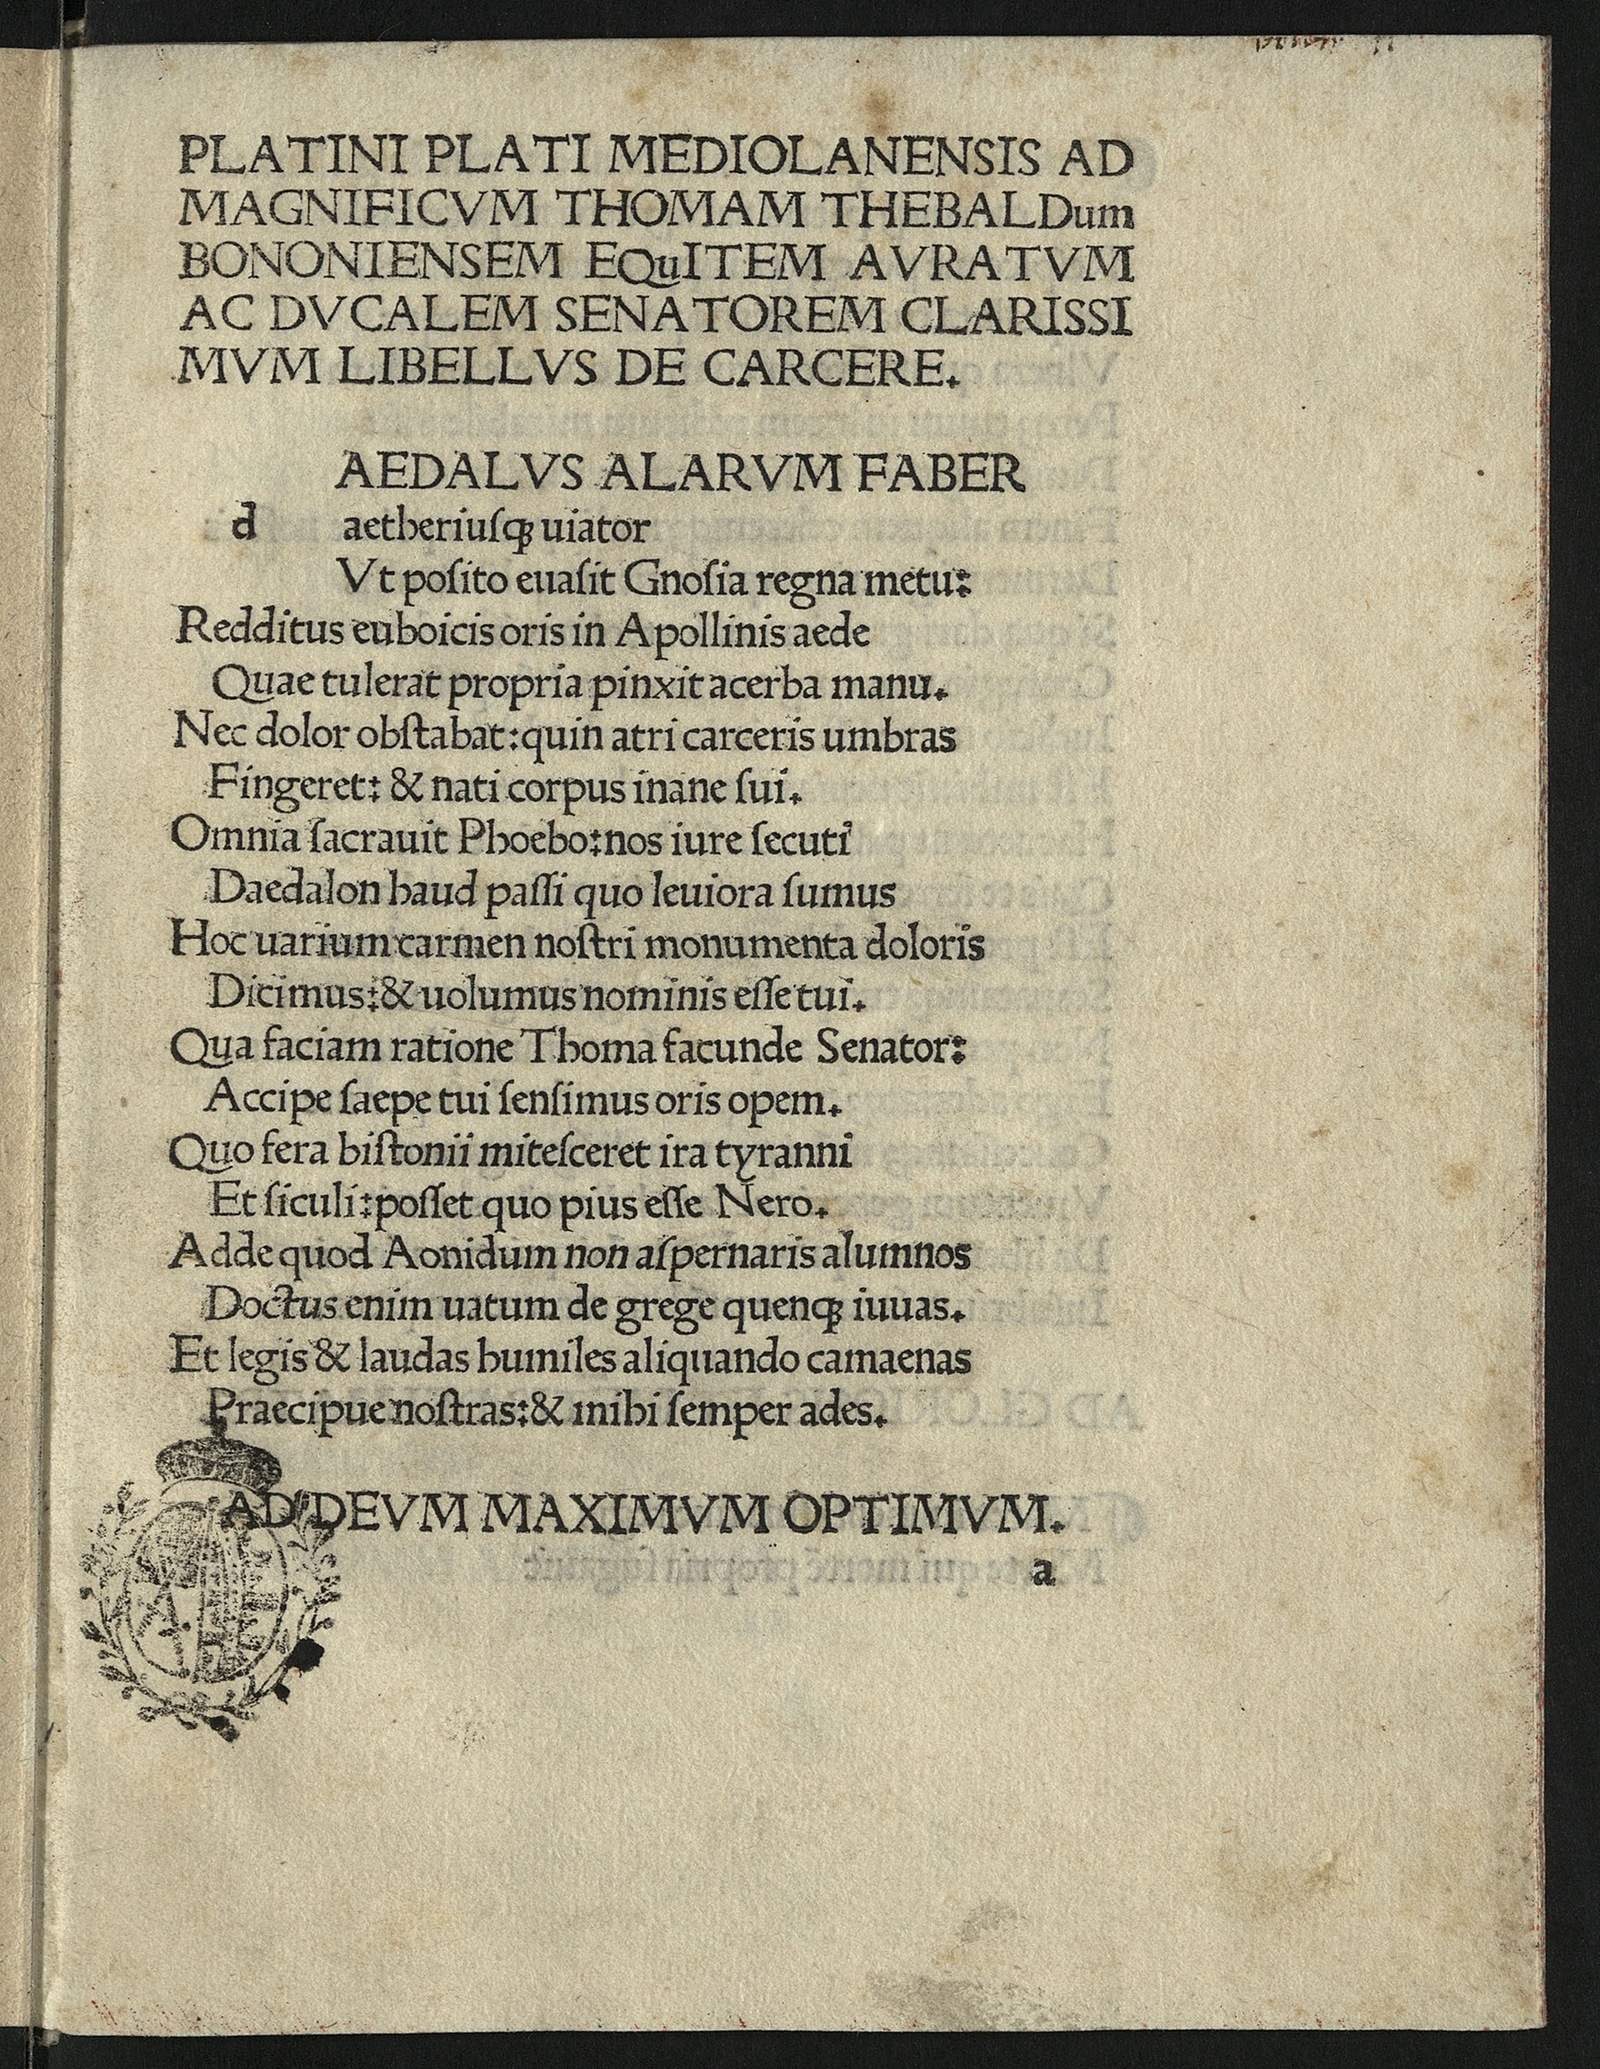 PLATINI PLATI MEDIOLANENSIS AD
MAGNIFICVM THOMAM THEBALDum
BONONIENSEM EQuITEM AVRATVM
AC DVCALEM SENATOREM CLARISSI
MVM LIBELLVS DE CARCERE.
AEDALVS ALARVM FABER
d aetheriuſqꝫ uiator
Vt poſito euaſit Gnoſia regna metu:
Redditus euboicis oris in Apollinis aede
Quae tulerat propria pinxit acerba manu.
Nec dolor obſtabat: quin atri carceris umbras
Fingeret: & nati corpus inane ſui.
Omnia ſacrauit Phoebo: nos iure ſecuti
Daedalon haud paſſi quo leuiora ſumus
Hoc uarium carmen noſtri monumenta doloris
Dicimus: & uolumus nominis eſſe tui.
Qua faciam ratione Thoma facunde Senator:
Accipe ſaepe tui ſenſimus oris opem.
Quo fera biſtonii miteſceret ira tyranni
Et ſiculi: poſſet quo pius eſſe Nero.
Adde quod Aonidum non aſpernaris alumnos
Doctus enim uatum de grege quenqꝫ iuuas.
Et legis & laudas humiles aliquando camaenas
Praecipue noſtras: & mihi ſemper ades.
AD DEVM MAXIMVM OPTIMVM.
a